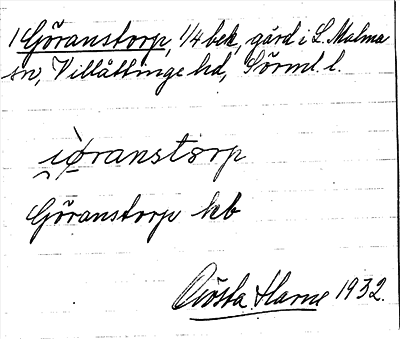 1 Göranstorp, 1/4 bek, gård i L. Malma
sn, Villåttinge hd, Sörml. l.
Göranstorp kb
Gösta Harne 1932.